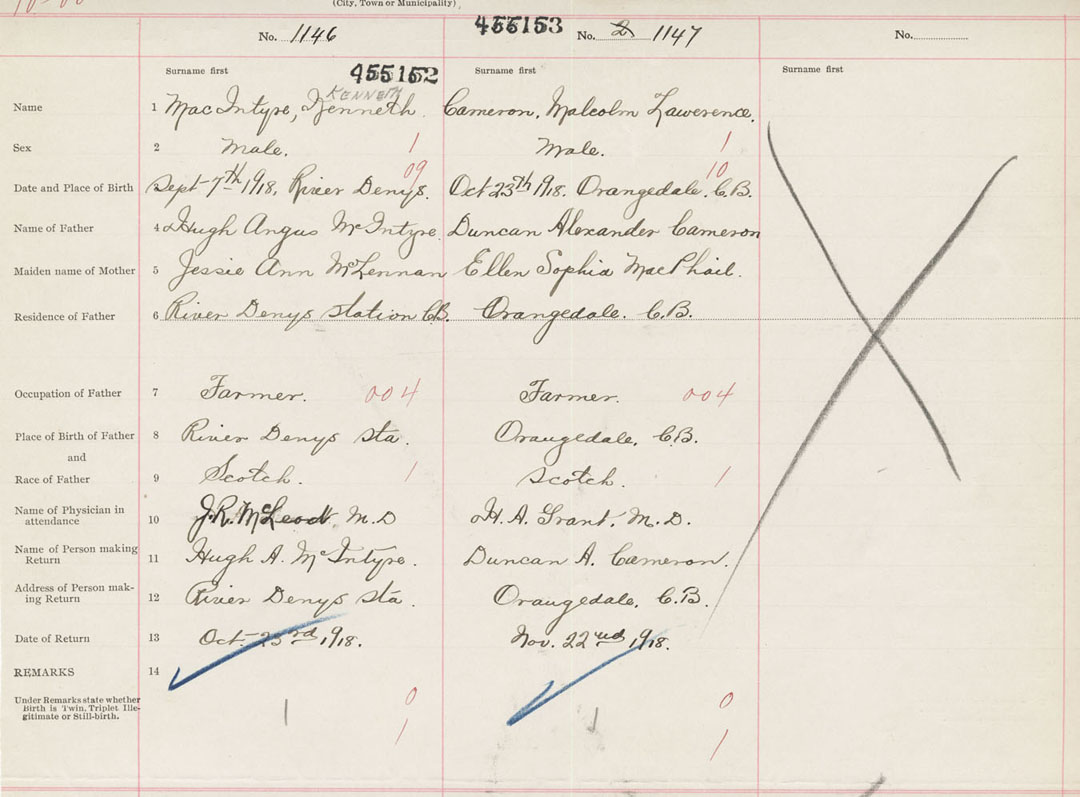 (City, Town or Municipality)
No. 1146 455153 No. 2 1147 No.
Surname first 455152 Surname first Surname first
KENNETH
Name 1 MacIntyre, Kenneth. Cameron, Malcolm Lawerence.
Sex 2 Male. 1 Male. 1
09 10
Date and Place of Birth 3 Sept 7th 1918, River Denys. Oct 23th 1918. Orangedale. C.B.
Name of Father 4 Hugh Angus McIntyre Duncan Alexander Cameron
Maiden name of Mother 5 Jessie Ann McLennan Ellen Sophia MacPhail.
Residence of Father 6 River Denys station C.B. Orangedale. C.B.
Occupation of Father 7 Farmer. 004 Farmer. 004
Place of Birth of Father 8 River Denys sta. Orangedale, C.B.
and
Race of Father 9 Scotch. 1 Scotch. 1
Name of Physician in
attendance 10 J.R. McLeod, M.D H. A. Grant, M.D.
Name of Person making
Return 11 Hugh A. McIntyre. Duncan A. Cameron.
Address of Person mak-
ing Return 12 River Denys sta. Orangedale, C.B.
Date of Return 13 Oct. 23rd 1918. Nov. 22nd 1918.
REMARKS 14
Under Remarks state whether
Birth is Twin, Triplet Ille-
gitimate or Still-birth.
1 0 1 0
1 1